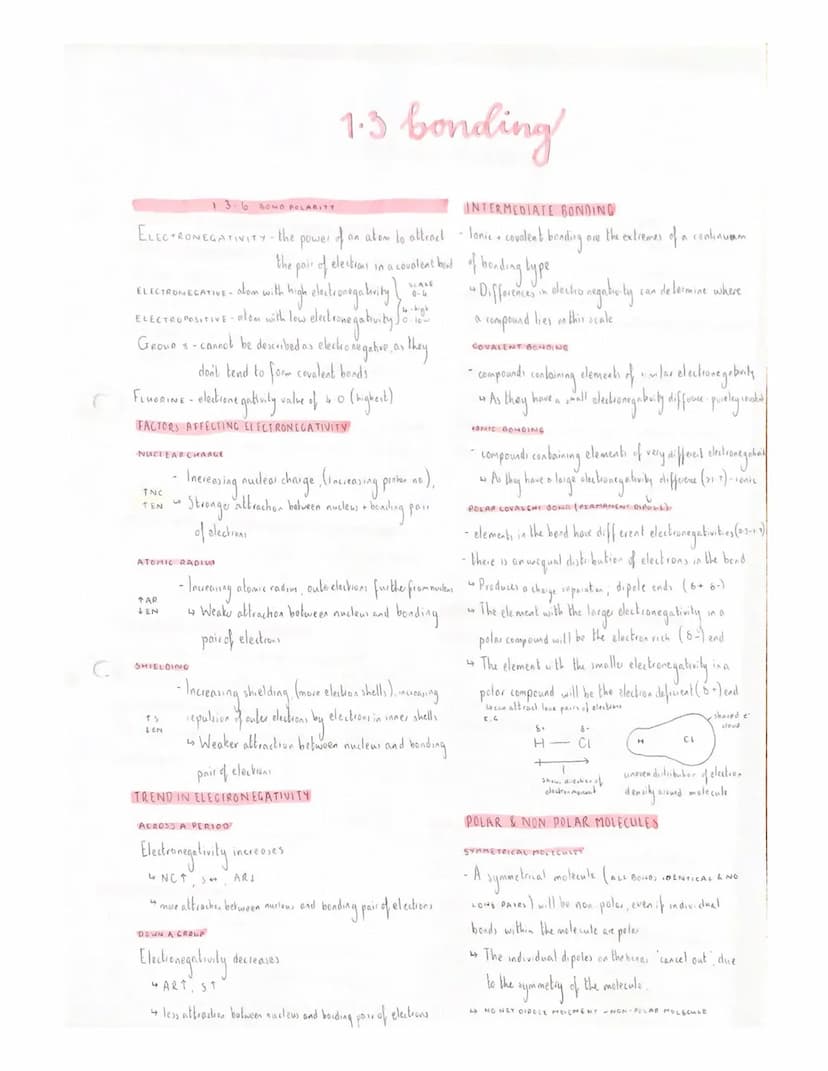 1.3 bonding
1.3.6 BOND POLARITY
ELECTRONEGATIVITY - the power of an atom to attract
the pair of electrons in a covalent bond
ELECTRONEGATIVE - atom with high electronegativity } SCALE 0-4
ELECTROPOSITIVE - atom with low electronegativity } 4-high 0-low
GROUP 8 - cannot be described as electronegative, as they
don't tend to form covalent bonds
FLUORINE - electronegativity value of 4.0 (highest)
FACTORS AFFECTING ELECTRONEGATIVITY
NUCLEAR CHARGE
- Increasing nuclear charge, (increasing proton no),
↑NC
↑EN
↳ Stronger attraction between nucleus + bonding pair
of electrons
ATOMIC RADIUS
- Increasing atomic radius, outer electrons further from nucleus
↑AR
↓EN
↳ Weaker attraction between nucleus and bonding
pair of electrons
SHIELDING
- Increasing shielding, (more electron shells), increasing
↑S
↓EN
repulsion of outer electrons by electrons in inner shells
↳ Weaker attraction between nucleus and bonding
pair of electrons
TREND IN ELECTRONEGATIVITY
ACROSS A PERIOD
Electronegativity increases
↳ NC↑, S↔, AR↓
↳ more attraction between nucleus and bonding pair of electrons
DOWN A GROUP
Electronegativity decreases
↳ AR↑, S↑
↳ less attraction between nucleus and bonding pair of electrons
INTERMEDIATE BONDING
- Ionic + covalent bonding are the extremes of a continuum
of bonding type
↳ Differences in electronegativity can determine where
a compound lies on this scale
COVALENT BONDING
- compounds containing elements of similar electronegativity
↳ As they have a small electronegativity difference - pureley covalent
IONIC BONDING
- compounds containing elements of very different electronegativity
↳ As they have a large electronegativity difference (>1.7) - ionic
POLAR COVALENT BOND (PERMANENT DIPOLE)
- elements in the bond have different electronegativities
- there is an unequal distribution of electrons in the bond
↳ Produces a charge separation, dipole ends (δ+ δ-)
↳ The element with the larger electronegativity in a
polar compound will be the electron rich (δ-) end
↳ The element with the smaller electronegativity in a
polar compound will be the electron deficient (δ+) end
↳ can attract lone pairs of electrons
E.G
δ+ δ-
H — Cl
shows direction of
electron movement
H Cl
shared e⁻
cloud
uneven distribution of electron
density around molecule
POLAR & NON POLAR MOLECULES
SYMMETRICAL MOLECULES
- A symmetrical molecule (ALL BONDS IDENTICAL & NO
LONE PAIRS) will be non polar, even if individual
bonds within the molecule are polar
↳ The individual dipoles on the bonds 'cancel out', due
to the symmetry of the molecule.
↳ NO NET DIPOLE MOVEMENT - NON-POLAR MOLECULE